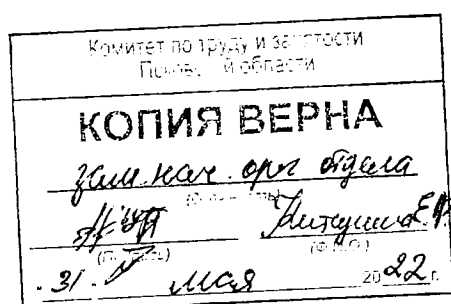 Комитет по труду и занятости
Псковской области
КОПИЯ ВЕРНА
зам. нач. орг. отдела
(подпись) (Ф.И.О.)
31. мая 2022 г.